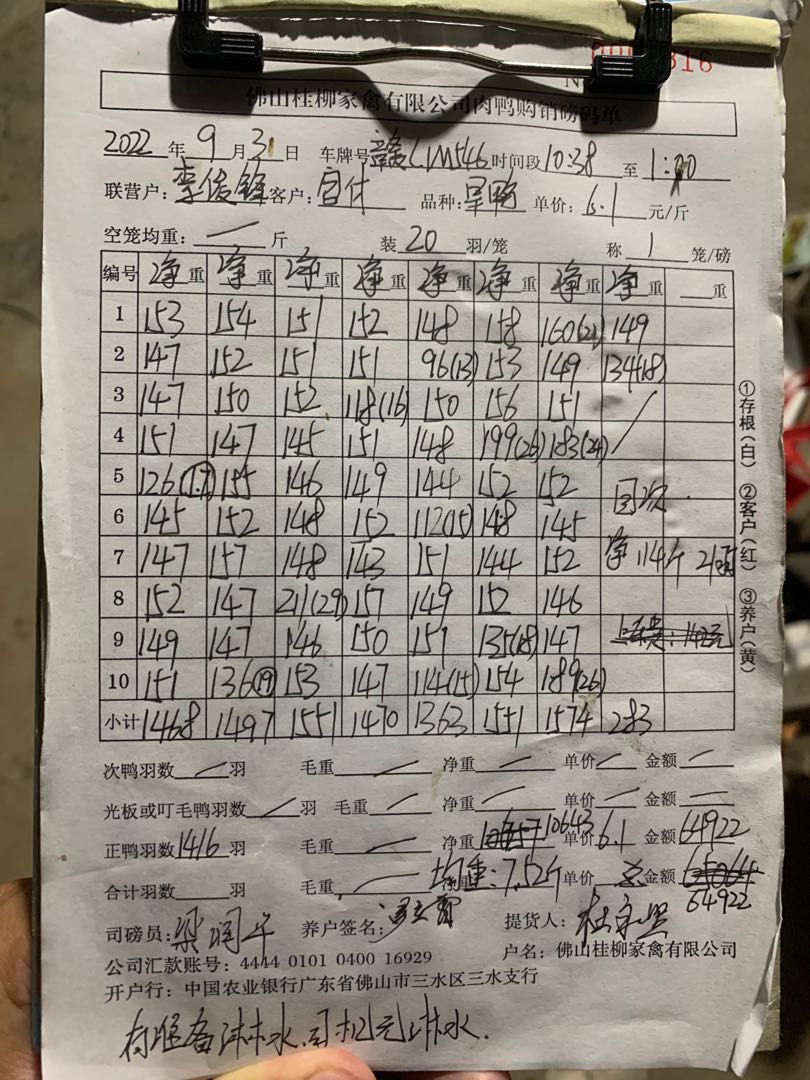 佛山桂柳家禽有限公司肉鸭购销磅码单
2022年9月3日 车牌号 LM546 时间段10:38至1:00
联营户:李俊锋 客户:自付 品种: 鸭 单价:6.1元/斤
空笼均重:一斤 装20羽/笼 称1笼/磅
编号 净重 净重 净重 净重 净重 净重 净重 净重 重
1 153 154 151 152 148 158 160(21) 149
2 147 152 151 151 96(13) 153 149 134(18)
3 147 150 152 118(16) 150 156 151
4 151 147 145 151 148 199(26) 183(24)
5 126(17) 155 146 149 144 152 152
6 145 152 148 152 112(15) 148 145
7 147 157 148 143 151 144 152 净114斤 21
8 152 147 211(29) 157 149 152 146
9 149 147 146 150 151 135(18) 147
10 151 136(19) 153 147 114(15) 154 189(26)
小计 1468 1497 1551 1470 1363 1551 1574 283
①存根(白) ②客户(红) ③养户(黄)
次鸭羽数 羽 毛重 净重 单价 金额
光板或叮毛鸭羽数 羽 毛重 净重 单价 金额
正鸭羽数1416羽 毛重 净重10643 单价6.1 金额64922
合计羽数 羽 毛重 均重:7.52斤 单价 总金额64922
司磅员:梁润 养户签名: 提货人:杜
公司汇款账号:4444 0101 0400 16929 户名:佛山桂柳家禽有限公司
开户行:中国农业银行广东省佛山市三水区三水支行
有准备淋水,